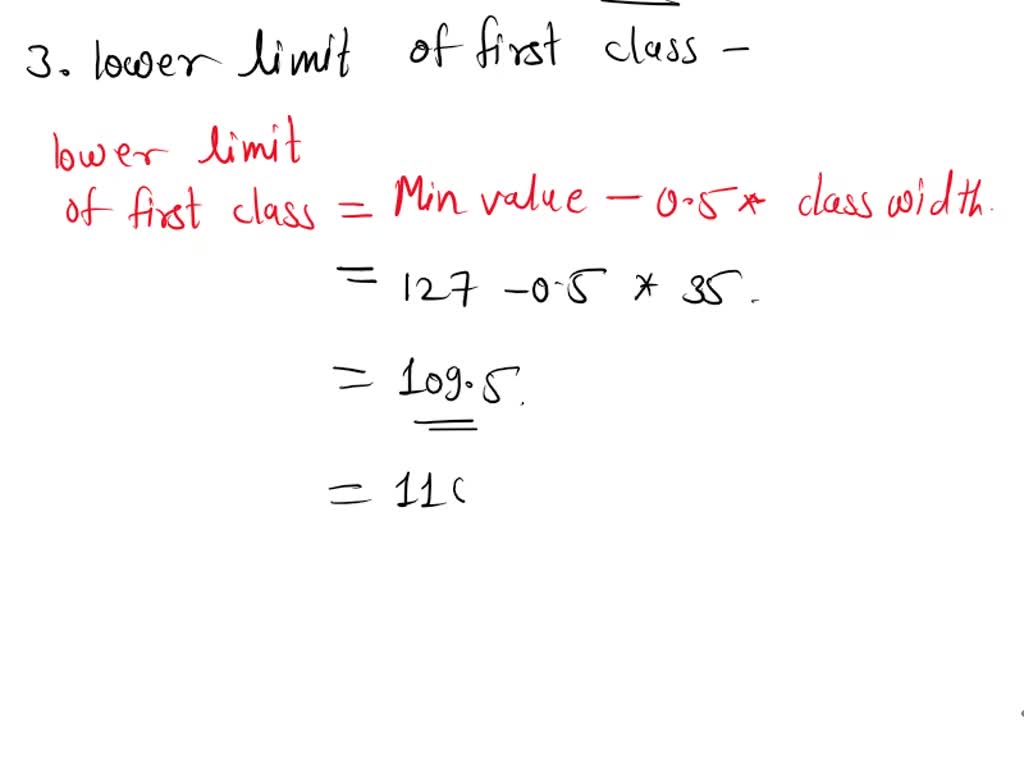 3. lower limit of first class –
lower limit
of first class = Min value – 0.5 * class width.
= 127 – 0.5 * 35.
= 109.5.
= 11(